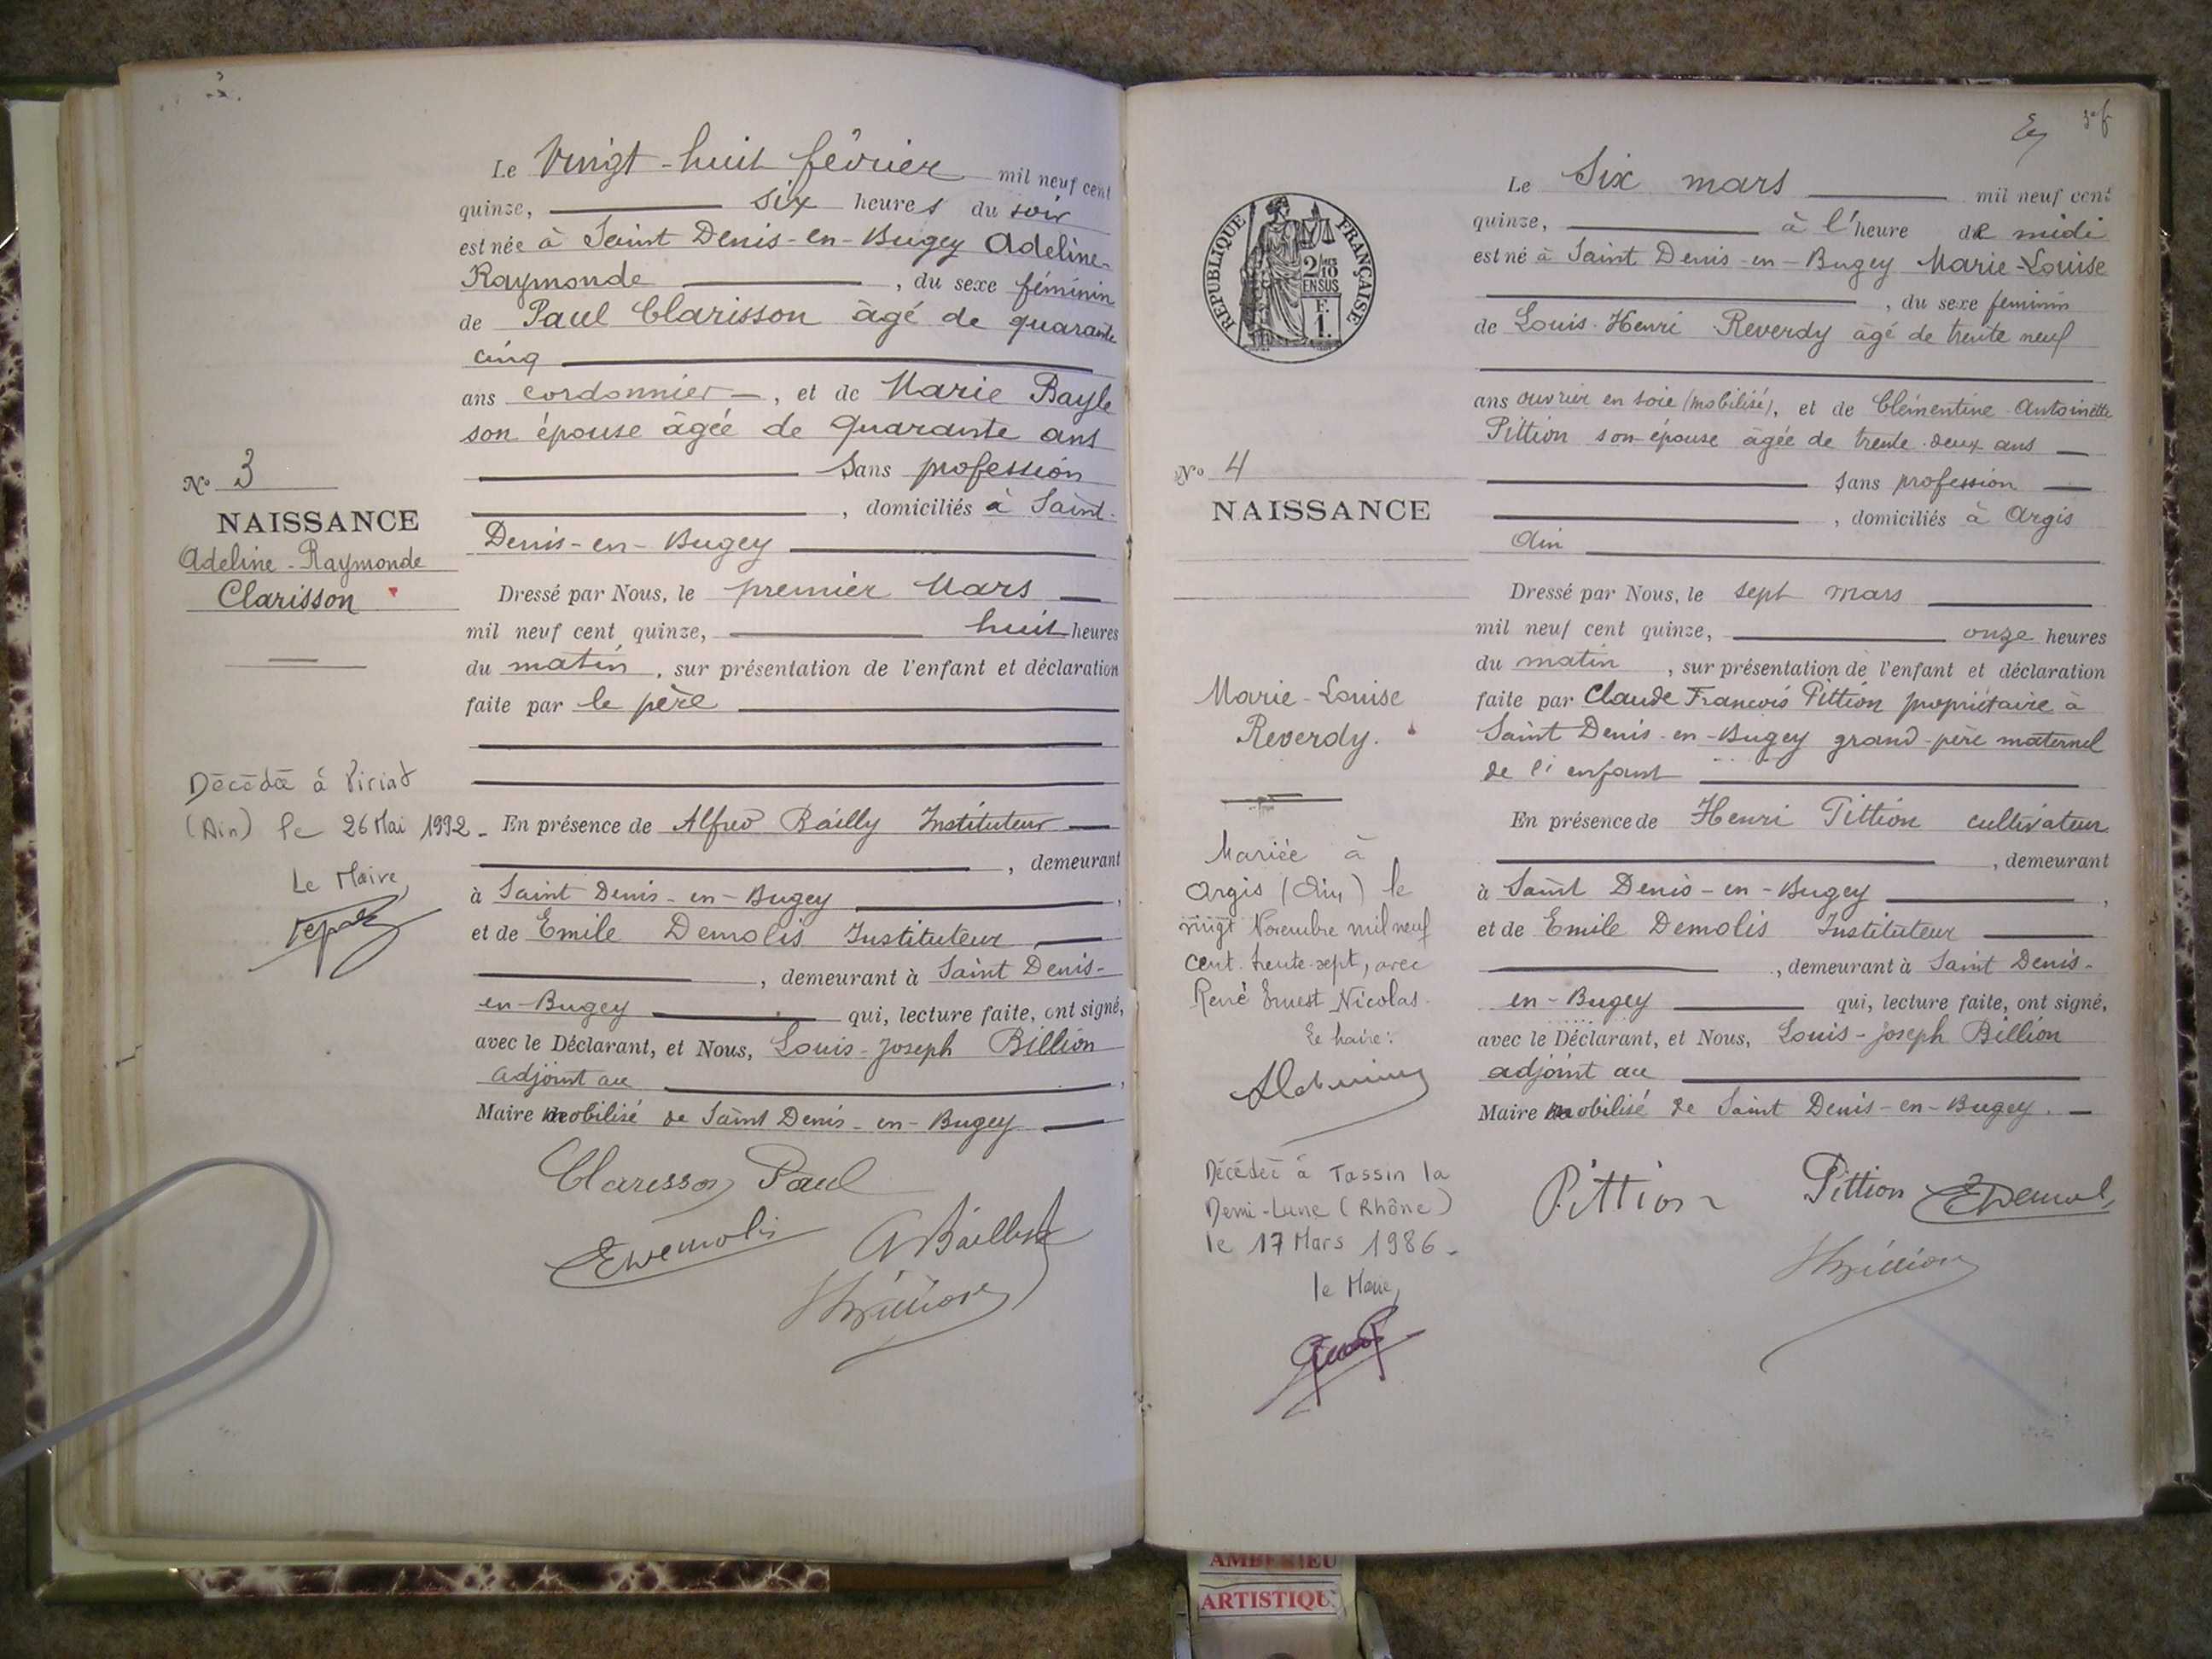 Le Vingt-huit février mil neuf cent
quinze, six heures du soir
est née à Saint Denis-en-Bugey Adeline-
Raymonde , du sexe féminin
de Paul Clarisson âgé de quarante
cinq
ans cordonnier , et de Marie Bayle
son épouse âgée de quarante ans
Sans profession
, domiciliés à Saint-
Denis-en-Bugey
N° 3
NAISSANCE
Adeline-Raymonde
Clarisson
Dressé par Nous, le premier Mars
mil neuf cent quinze, huit heures
du matin , sur présentation de l'enfant et déclaration
faite par le père
Décédée à Viriat
(Ain) le 26 Mai 1992 -
Le Maire
En présence de Alfred Bailly Instituteur
, demeurant
à Saint Denis-en-Bugey ,
et de Emile Demolis Instituteur
, demeurant à Saint Denis-
en-Bugey qui, lecture faite, ont signé,
avec le Déclarant, et Nous, Louis-Joseph Billion
adjoint au ,
Maire mobilisé de Saint Denis-en-Bugey
Clarisson Paul
EDemolis
ABailly
Billion
REPUBLIQUE FRANÇAISE
2/10
EN SUS
F.
1.
Le Six mars mil neuf cent
quinze, à l'heure de midi
est né à Saint Denis-en-Bugey Marie-Louise
, du sexe féminin
de Louis-Henri Reverdy âgé de trente neuf
ans ouvrier en soie (mobilisé), et de Clémentine-Antoinette
Pittion son épouse âgée de trente-deux ans
Sans profession
, domiciliés à Argis
Ain
N° 4
NAISSANCE
Marie-Louise
Reverdy.
Dressé par Nous, le sept mars
mil neuf cent quinze, onze heures
du matin , sur présentation de l'enfant et déclaration
faite par Claude François Pittion propriétaire à
Saint Denis-en-Bugey grand-père maternel
de l'enfant
Mariée à
Argis (Ain) le
vingt Novembre mil neuf
cent trente-sept, avec
René Ernest Nicolas.
Le Maire:
Décédée à Tassin la
Demi-Lune (Rhône)
le 17 Mars 1986 -
le Maire,
En présence de Henri Pittion cultivateur
, demeurant
à Saint Denis-en-Bugey ,
et de Emile Demolis Instituteur
, demeurant à Saint Denis-
en-Bugey qui, lecture faite, ont signé,
avec le Déclarant, et Nous, Louis-Joseph Billion
adjoint au
Maire mobilisé de Saint Denis-en-Bugey.
Pittion Pittion EDemolis
Billion
AMBERIEU
ARTISTIQU